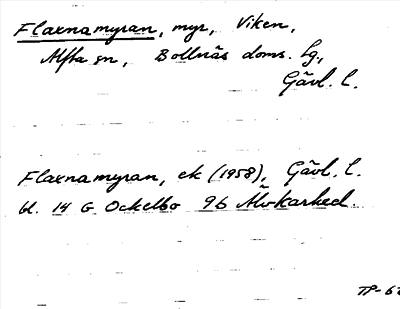 Flaxnamyran, myr, Viken,
Alfta sn, Bollnäs doms. lg.,
Gävl. l.
Flaxnamyran, ek (1958), Gävl. l.
bl. 14 G Ockelbo 9b Älvkarhed.
TP-62